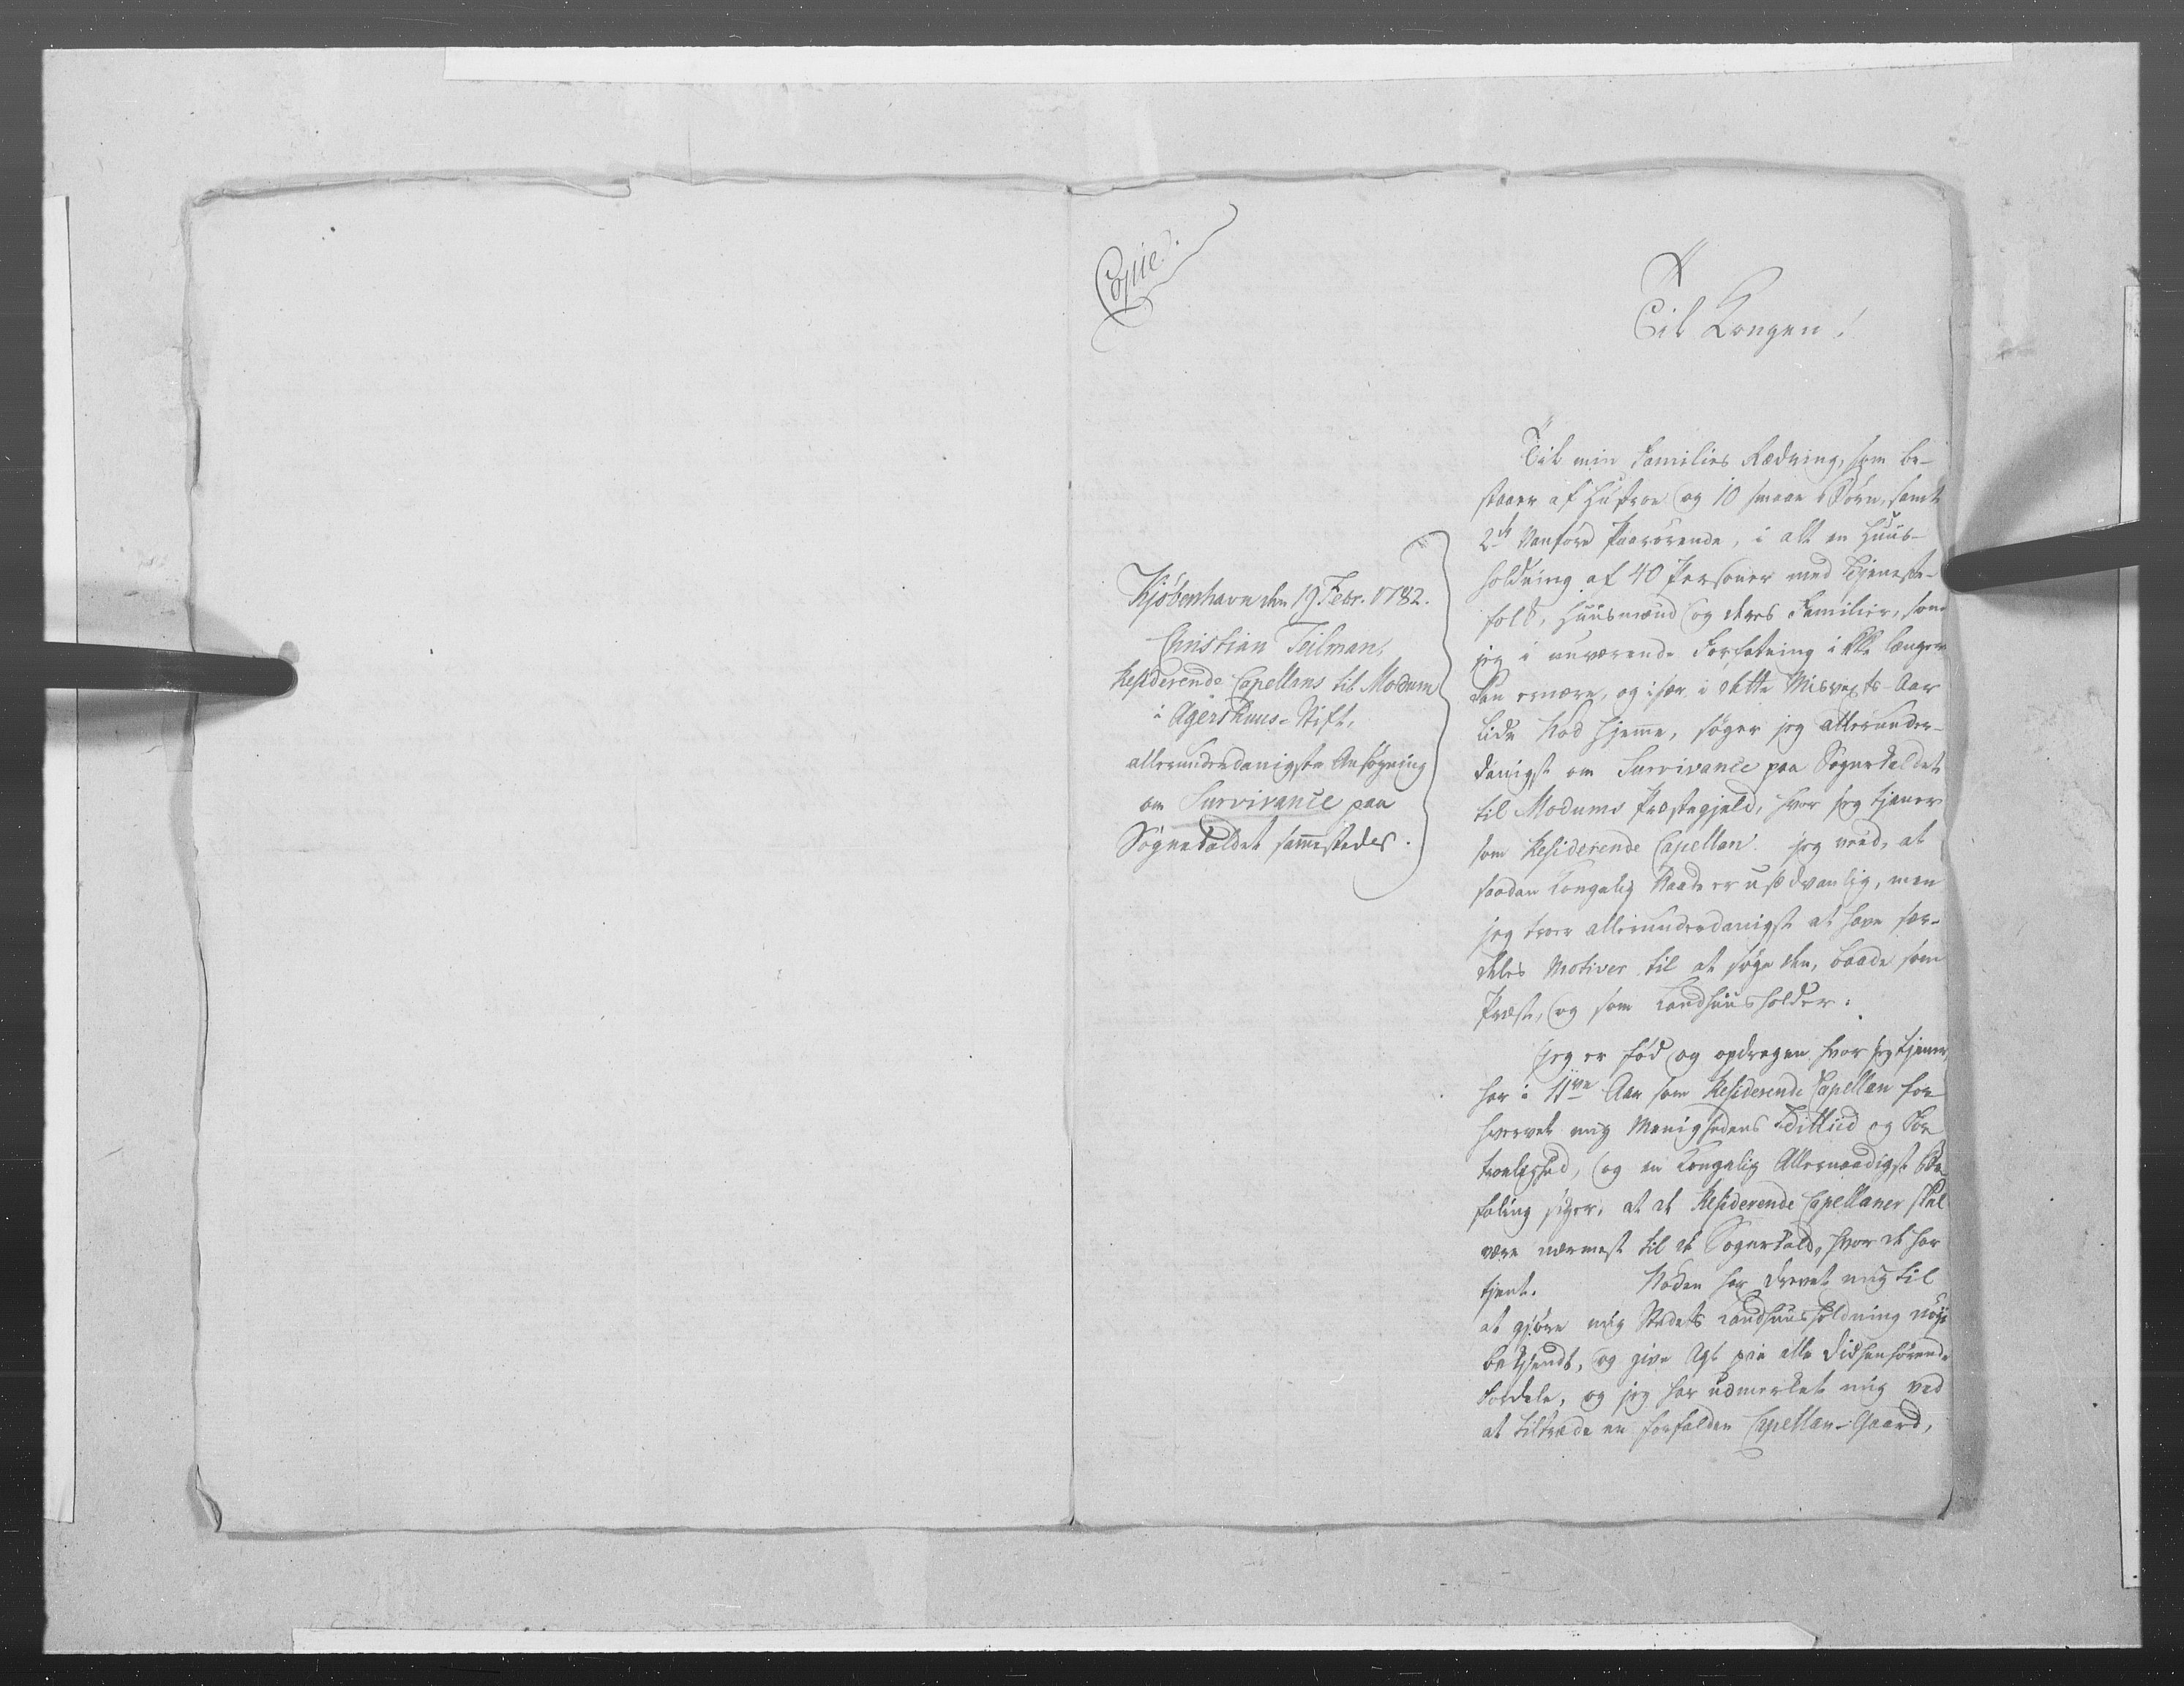 Copie.
Til Kongen!
Kjøbenhavn den 19 Febr. 1782.
Christian Teilman,
Residerende Capellans til Modum
i Agershuus-Stift,
allerunderdanigste Ansøgning
om Survivance paa
Sognekaldet sammestedes.
Til min Families Redning, som be-
staaer af Hustroe og 10 smaae Børn, samt
2de Vanføre Paarørende, i alt en Huus-
holdning af 40 Personer med Tjeneste-
folk, Huusmænd og deres Familier, som
jeg i nuværende Forfatning ikke længer
kan ernære, og især i dette Misvexts-Aar
lide Nød hjemme, søger jeg allerunder-
danigst om Survivance paa Sognekaldet
til Modums Præstegjeld, hvor jeg tjener
som Residerende Capellan. jeg veed, at
saadan Kongelig Naade er usædvanlig, men
jeg troer allerunderdanigst at have sær-
deles Motiver til at søge den, baade som
Præst, og som Landhuusholder.
jeg er fød og opdragen hvor jeg tjener,
har i 11ve Aar som Residerende Capellan for-
hvervet mig Menighedens Tillid og For
troelighed, og en Kongelig Allernaadigst Be-
faling siger, at de Residerende Capellaner skal
være nærmest til de Sognekald, hvor de har
tjent. Nøden har drevet mig til
at gjøre mig Stedets Landhuusholdning nøje
bekjendt, og give Agt paa alle didhenhørende
Fordele, og jeg har udmerket mig ved
at tiltræde en forfalden Capellan-Gaard,